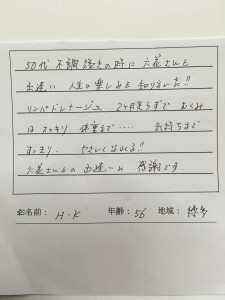 50代 不調続きの時に 六花さんと
出逢い 人生の楽しみを知りました!!
リンパドレナージュ 2ヶ月足らずで むくみ
は スッキリ 体重まで・・・・ 気持ちまで
すっきり. やさしくなれる!!
六花さんとの 出逢いに 感謝です
お名前: H・K 年齢: 56 地域: 博多